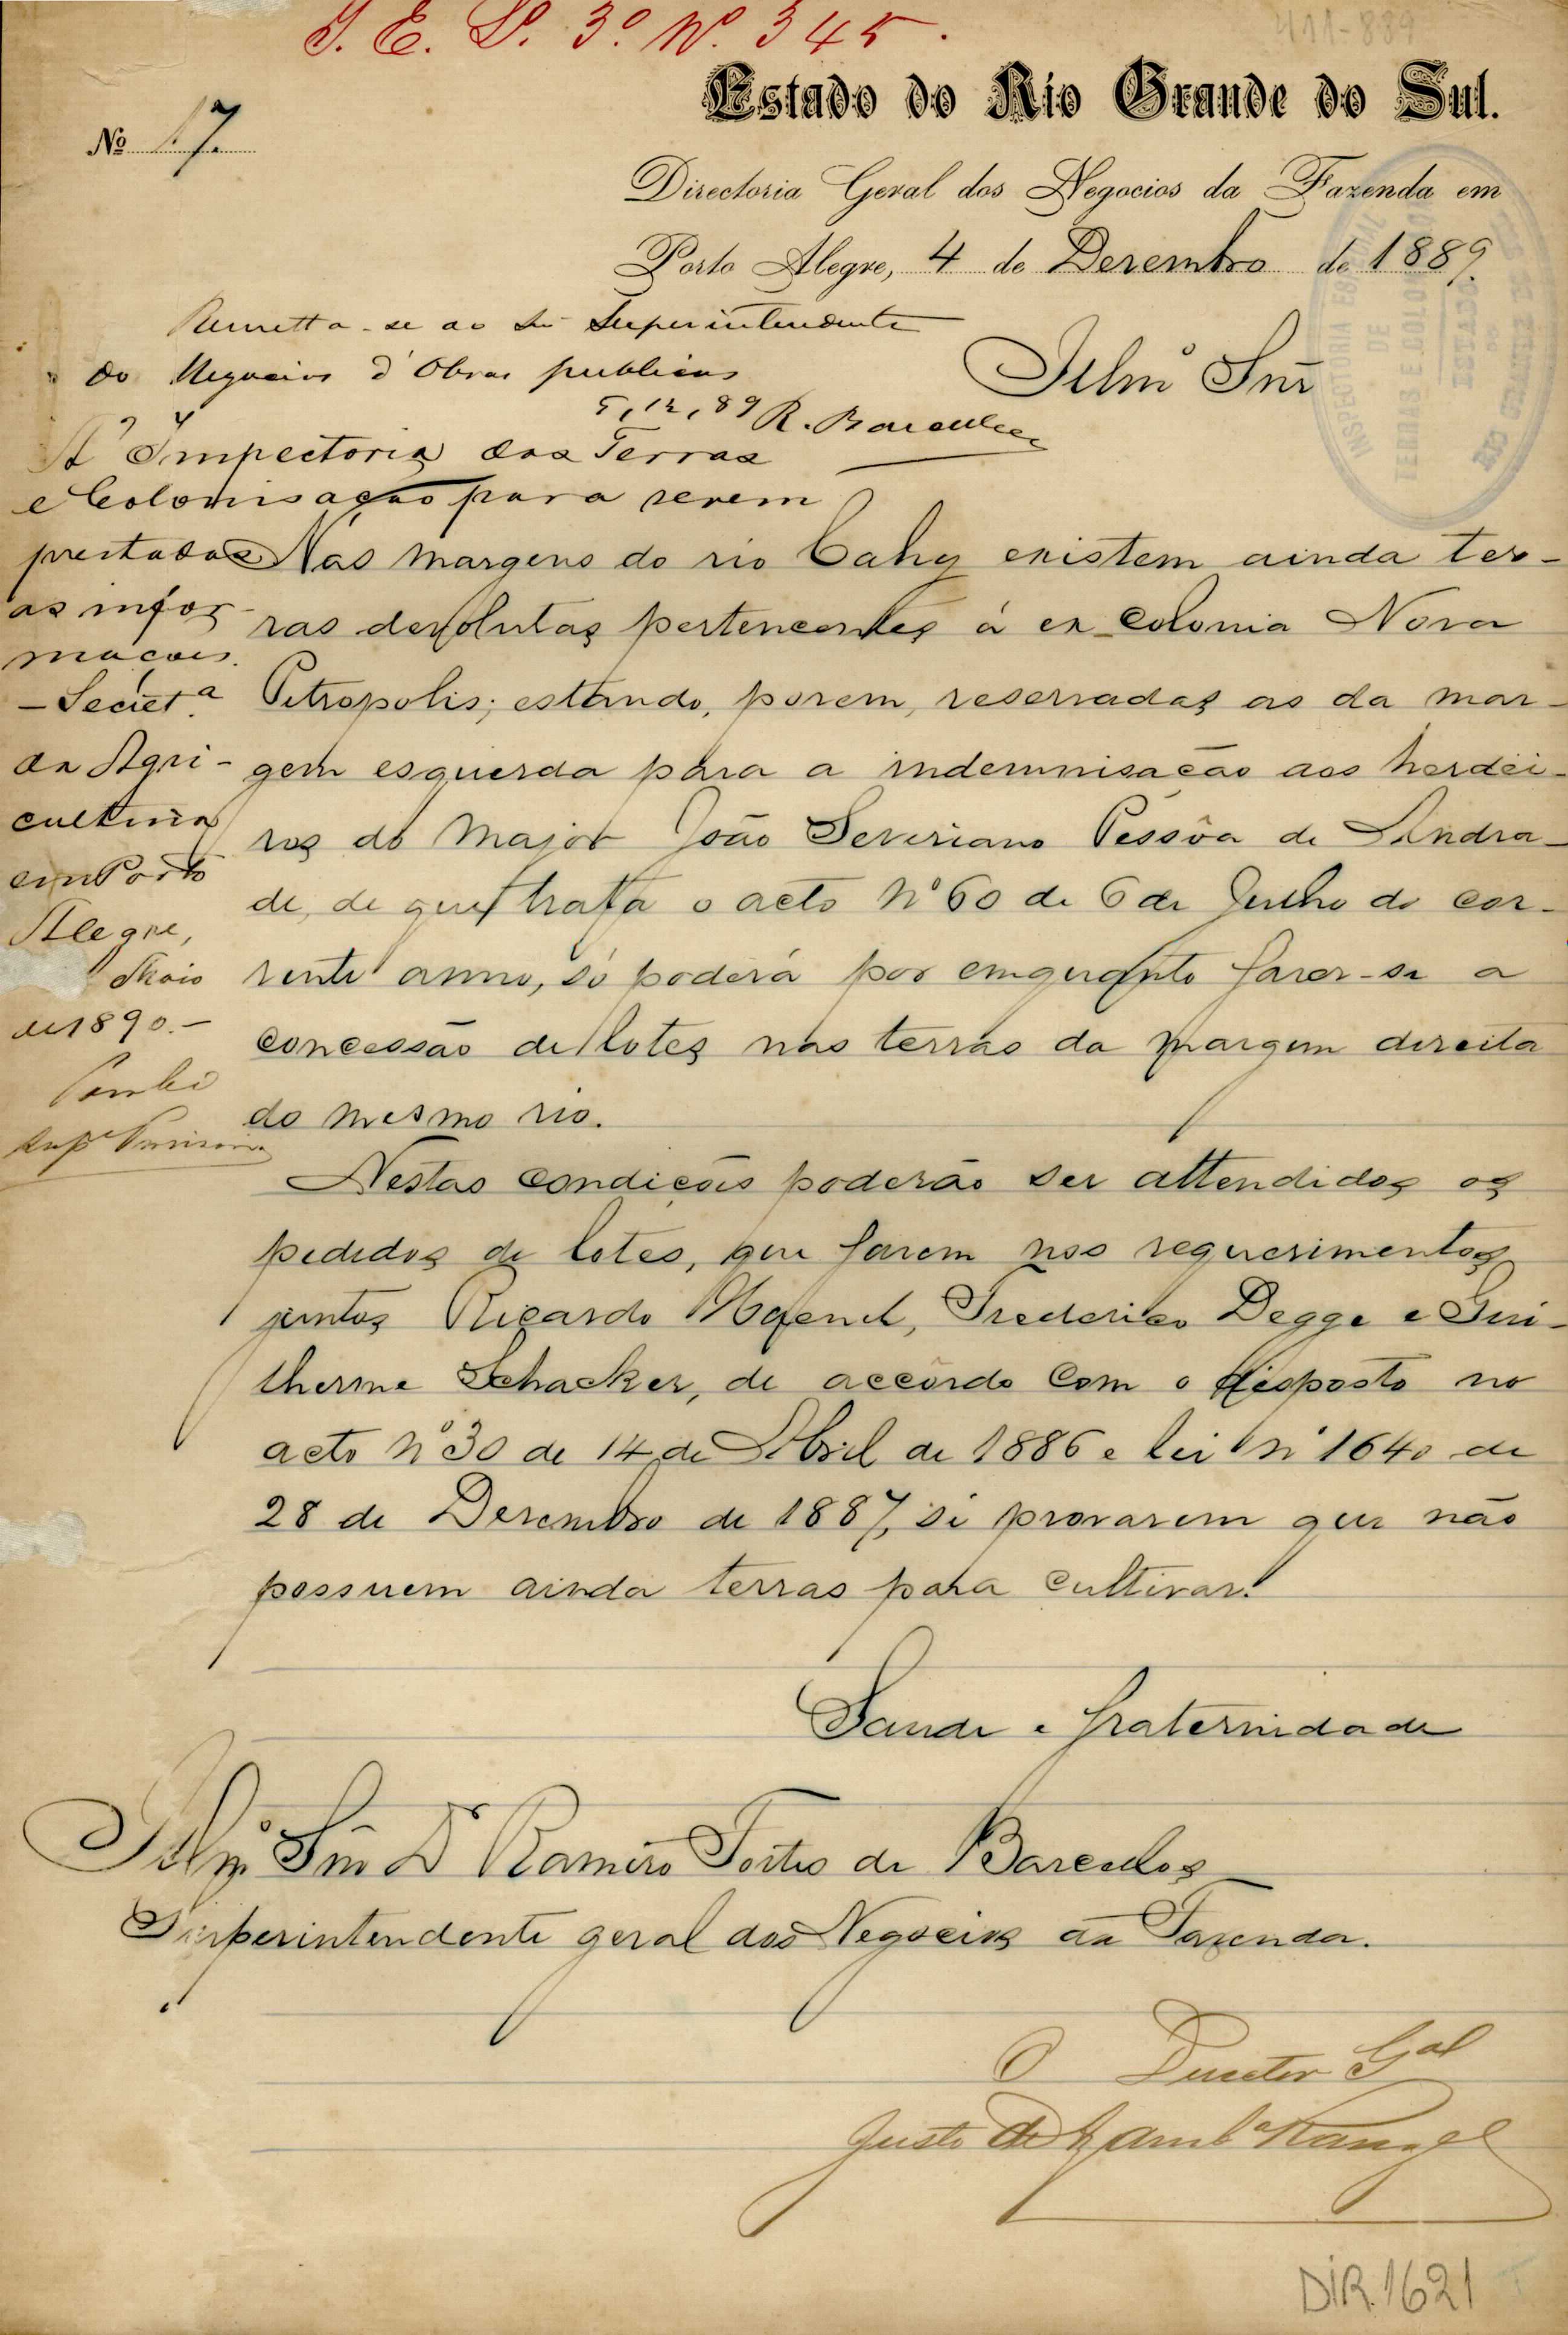 J. E. L. 3º Nº 345.
411-889
Estado do Rio Grande do Sul.
Nº 17.
Directoria Geral dos Negocios da Fazenda em
Porto Alegre, 4 de Dezembro de 1889.
Remetta-se ao Snr Superintendente
do Negocios d'Obras publicas
5, 12, 89 R. Barcellos
Illmº Snr
INSPECTORIA ESPECIAL DE TERRAS E
ESTADO DO RIO GRANDE DO SUL
Á Inspectoria das Terras
e Colonisação para serem
prestadas
as infor-
mações.
- Secretª
da Agri-
cultura
em Porto
Alegre,
Maio
de 1890.-
Nas margens do rio Cahy existem ainda ter-
ras devolutas pertencentes á ex-colonia Nova
Petropolis; estando, porem, reservadas as da mar-
gem esquerda para a indemnisação aos herdei-
ros do Major João Severiano Pessôa de Andra-
de, de que trata o acto Nº 60 de 6 de Julho do cor-
rente anno, só poderá por emquanto fazer-se a
concessão de lotes nas terras da margem direita
do mesmo rio.
Nestas condições poderão ser attendidos os
pedidos de lotes, que fazem nos requerimentos
juntos Ricardo Haenel, Frederico Degge e Gui-
lherme Schacker, de accôrdo com o disposto no
acto nº 30 de 14 de Abril de 1886 e lei nº 1640 de
28 de Dezembro de 1887, si provarem que não
possuem ainda terras para cultivar.
Saude e fraternidade
Illmº Snr Dr Ramiro Fortes de Barcellos
Superintendente geral dos Negocios da Fazenda.
O Director Gal
Justo de Rangel
DIR.1621